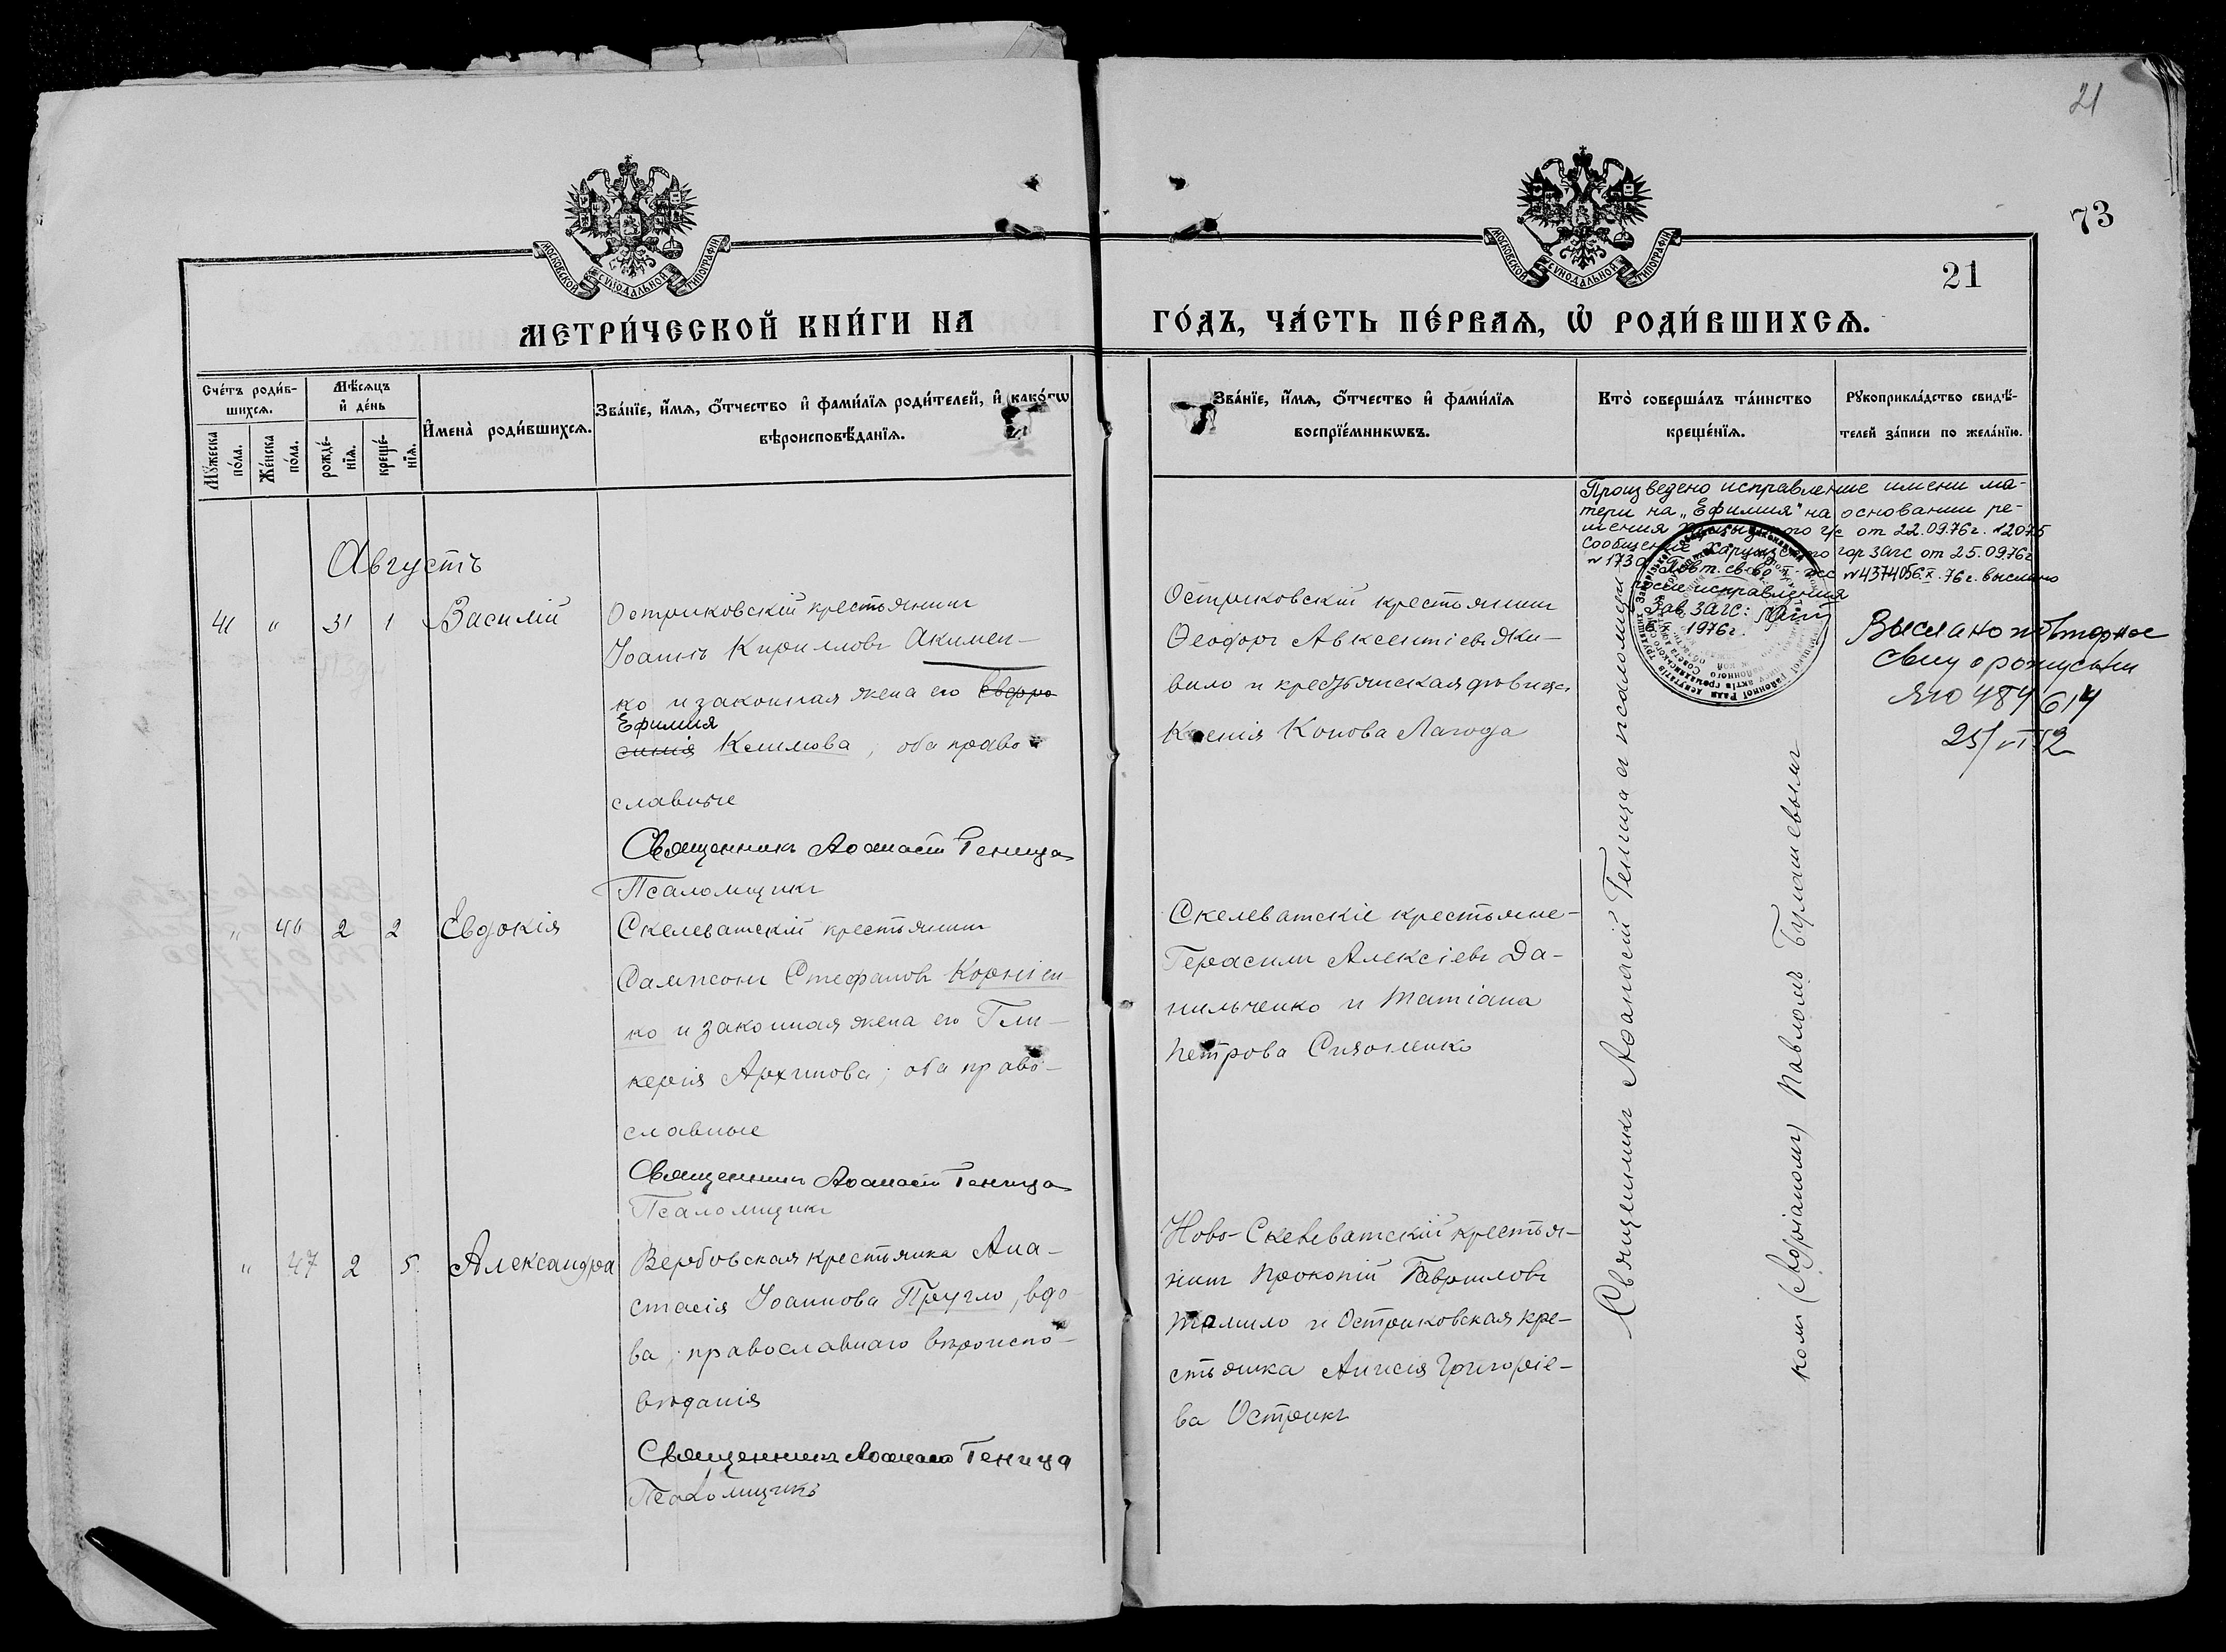 21
73
МОСКОВСКОЙ СѴНОДАЛЬНОЙ ТИПОГРАФІИ
МОСКОВСКОЙ СѴНОДАЛЬНОЙ ТИПОГРАФІИ
21
МЕТРИ́ЧЕСКОЙ КНИ́ГИ НА
ГО́ДЪ, ЧА́СТЬ ПЕ́РВАѦ, Ѡ҆ РОДИ́ВШИХСѦ.
Сче́тъ роди́в-
шихсѧ.
Мѣ́сѧцъ
и҆ де́нь
Мꙋ́жеска
по́ла.
Же́нска
по́ла.
рожде́-
нїѧ.
креще́-
нїѧ.
И҆мена̀ роди́вшихсѧ.
Зва́нїе, и҆́мѧ, ѻ҆́тчество и҆ фами́лїѧ роди́телей, и҆ како́гѡ
вѣроисповѣ́данїѧ.
Зва́нїе, и҆́мѧ, ѻ҆́тчество и҆ фами́лїѧ
воспрїе́мникѡвъ.
Кто̀ соверша́лъ та́инство
креще́нїѧ.
Рꙋкоприкла́дство свидѣ́-
телей за́писи по жела́нїю.
Августъ
41 " 31 1 Василій
Остриковскій крестьянинъ
Іоаннъ Кирилловъ Акимен-
ко и законная жена его Евфро
Ефимия
синія Климова, оба право-
славные
Священникъ Аѳанасій Геница
Псаломщикъ
Остриковскій крестьянинъ
Ѳеодоръ Авксентіевъ Жи-
вило и крестьянская дѣвица
Ксенія Конова Лагода
Произведено исправление имени ма-
тери на „Ефимия" на основании ре-
шения г/с от 22.09.76г.
Сообщение Харцызского гор ЗАГС от 25.09.76г
после исправления
Зав. ЗАГС:
1976г.
Выслано повторное
свид о рождении
ЯЮ 484614
" 46 2 2 Евдокія
Скелеватскій крестьянинъ
Сампсонъ Стефановъ Корніен-
ко и законная жена его Гли-
керія Архипова; оба право-
славные
Священникъ Аѳанасій Геница
Псаломщикъ
Скелеватскіе крестьяне-
Герасимъ Алексіевъ Да-
нильченко и Татіана
Петрова
" 47 2 5 Александра
Вербовская крестьянка Ана-
стасія Іоаннова Пругло, вдо-
ва, православнаго вѣроиспо-
вѣданія
Священникъ Аѳанасій Геница
Псаломщикъ
Ново-Скелеватскій крестья-
нинъ Прокопій Гавриловъ
Томило и Остриковская кре-
стьянка Анисія Григоріе-
ва Острикъ
Священникъ Аѳанасій Геница и псаломщи-
комъ Павломъ